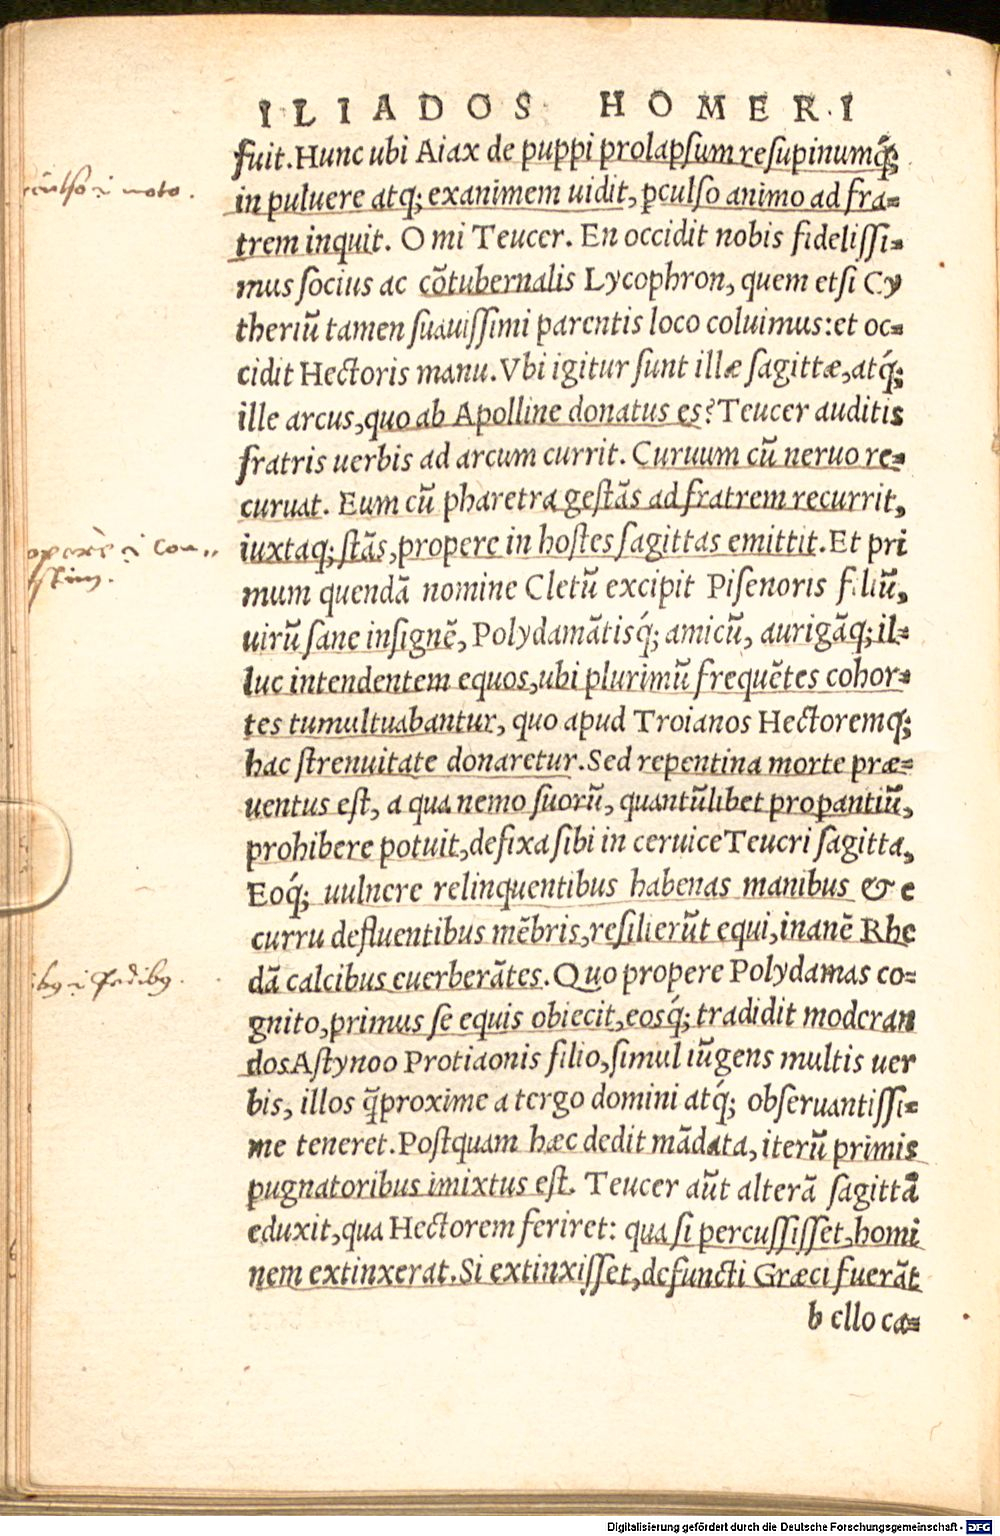 ILIADOS HOMERI
fuit. Hunc ubi Aiax de puppi prolapsum resupinumq́;
in puluere atq; exanimem uidit, ꝑculso animo ad fra-
trem inquit. O mi Teucer. En occidit nobis fidelissi-
mus socius ac cõtubernalis Lycophron, quem etsi Cy
theriũ tamen suauissimi parentis loco coluimus: et oc-
cidit Hectoris manu. Vbi igitur sunt illæ sagittæ, atq́;
ille arcus, quo ab Apolline donatus es? Teucer auditis
fratris uerbis ad arcum currit. Curuum cũ neruo re-
curuat. Eum cũ pharetra gestãs ad fratrem recurrit,
iuxtaq; stãs, propere in hostes sagittas emittit. Et pri
mum quendã nomine Cletũ excipit Pisenoris filiũ,
uirũ sane insignẽ, Polydamãtisq́; amicũ, aurigãq; il-
luc intendentem equos, ubi plurimũ frequẽtes cohor-
tes tumultuabantur, quo apud Troianos Hectoremq;
hac strenuitate donaretur. Sed repentina morte præ-
uentus est, a qua nemo suorũ, quantũlibet propantiũ,
prohibere potuit, defixa sibi in ceruice Teucri sagitta,
Eoq́; uulnere relinquentibus habenas manibus & e
curru defluentibus mẽbris, resilierũt equi, inanẽ Rhe
dã calcibus euerberãtes. Quo propere Polydamas co-
gnito, primus se equis obiecit, eosq́; tradidit moderan
dos Astynoo Protiaonis filio, simul iũgens multis uer
bis, illos q̃proxime a tergo domini atq́; obseruantissi-
me teneret. Postquam hæc dedit mãdata, iterũ primis
pugnatoribus imixtus est. Teucer aũt alterã sagittã
eduxit, qua Hectorem feriret: qua si percussisset, homi
nem extinxerat. Si extinxisset, defuncti Græci fuerãt
bello ca-
moto.
Digitalisierung gefördert durch die Deutsche Forschungsgemeinschaft - DFG